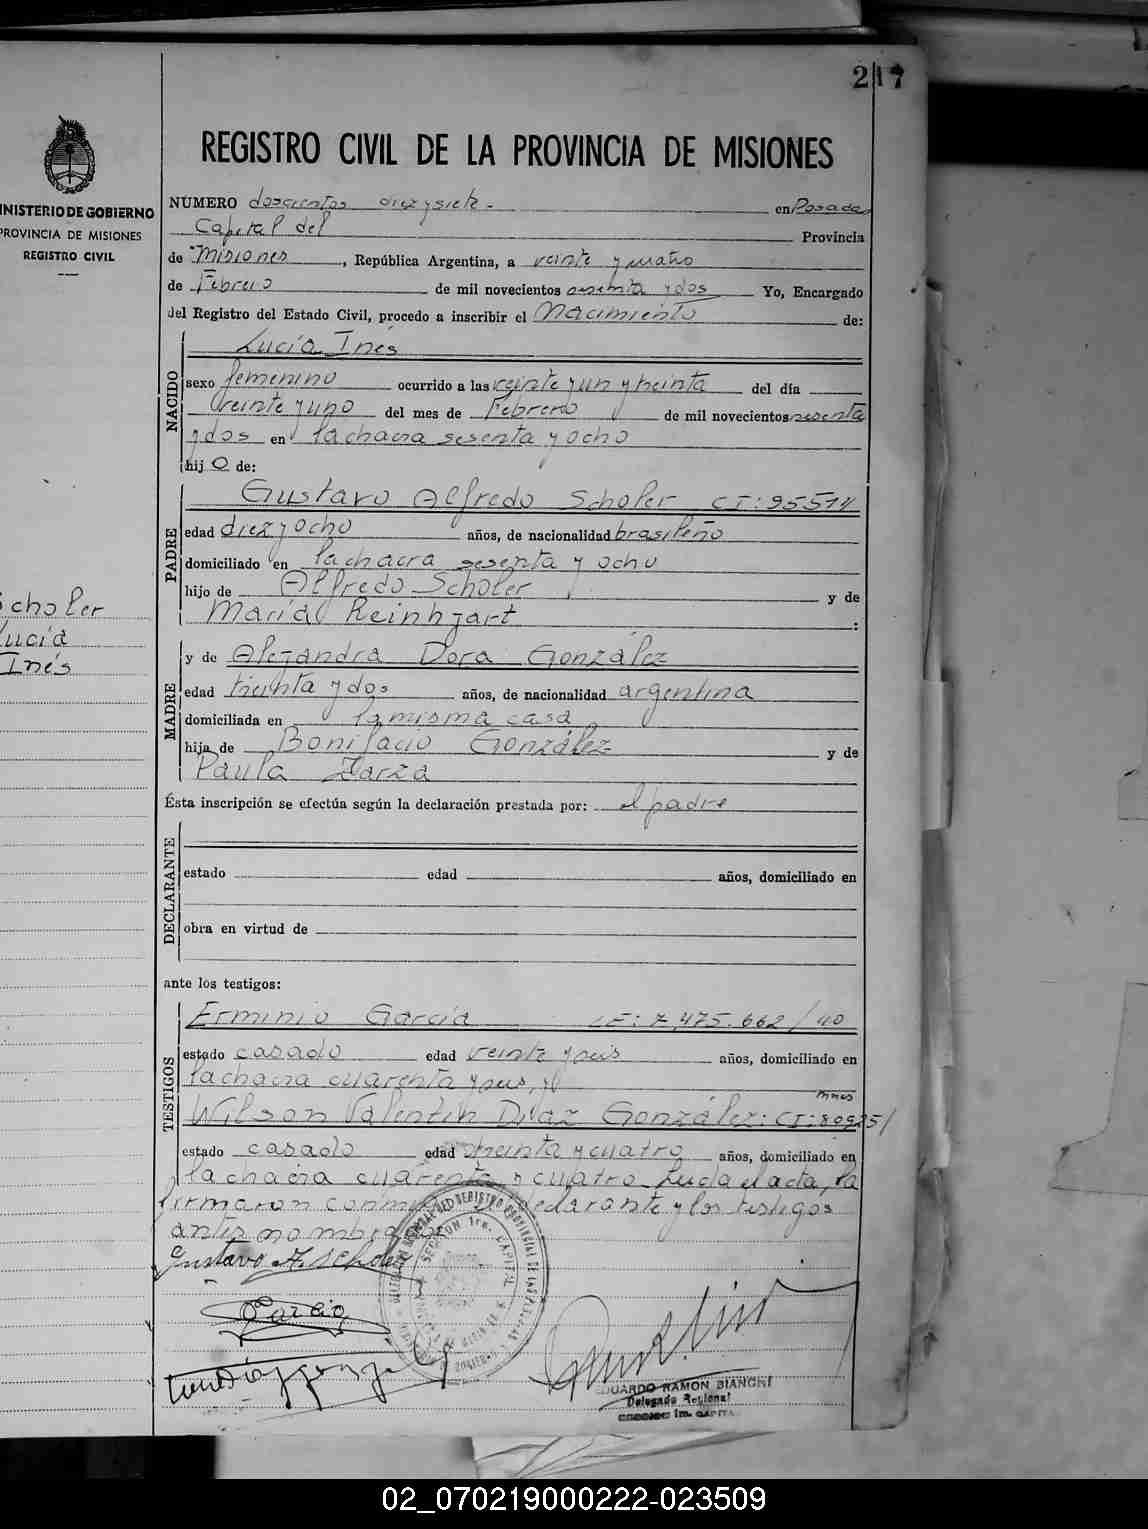 217
REGISTRO CIVIL DE LA PROVINCIA DE MISIONES
MINISTERIO DE GOBIERNO
PROVINCIA DE MISIONES
REGISTRO CIVIL
NUMERO doscientos diez y siete - en Posadas
Capital del Provincia
de Misiones, República Argentina, a veinte y
de Febrero de mil novecientos sesenta y dos Yo, Encargado
del Registro del Estado Civil, procedo a inscribir el Nacimiento de:
NACIDO
Lucía Inés
sexo femenino ocurrido a las veinte y un y treinta del día
veinte y uno del mes de Febrero de mil novecientos sesenta
y dos en la chacra sesenta y ocho
hijo de:
PADRE
Gustavo Alfredo Scholer CI: 95514
edad diez y ocho años, de nacionalidad brasileño
domiciliado en la chacra sesenta y ocho
hijo de Alfredo Scholer y de
María Reinhzart :
Scholer
Lucía
Inés
MADRE
y de Alejandra Dora González
edad treinta y dos años, de nacionalidad argentina
domiciliada en la misma casa
hija de Bonifacio González y de
Paula Zarza
Ésta inscripción se efectúa según la declaración prestada por: el padre
DECLARANTE
estado edad años, domiciliado en
obra en virtud de
ante los testigos:
TESTIGOS
Erminio García LE: 7.475.662/40
estado casado edad veinte y seis años, domiciliado en
la chacra cuarenta y seis, y
Mnes
Wilson Valentín Díaz González: CI: 80925/
estado casado edad treinta y cuatro años, domiciliado en
la chacra cuarenta y cuatro Leída el acta, la
firmaron conmigo declarante y los testigos
antes nombrados
Gustavo A. Scholer
García
EDUARDO RAMON BIANCHI
Delegado Regional
02_070219000222-023509